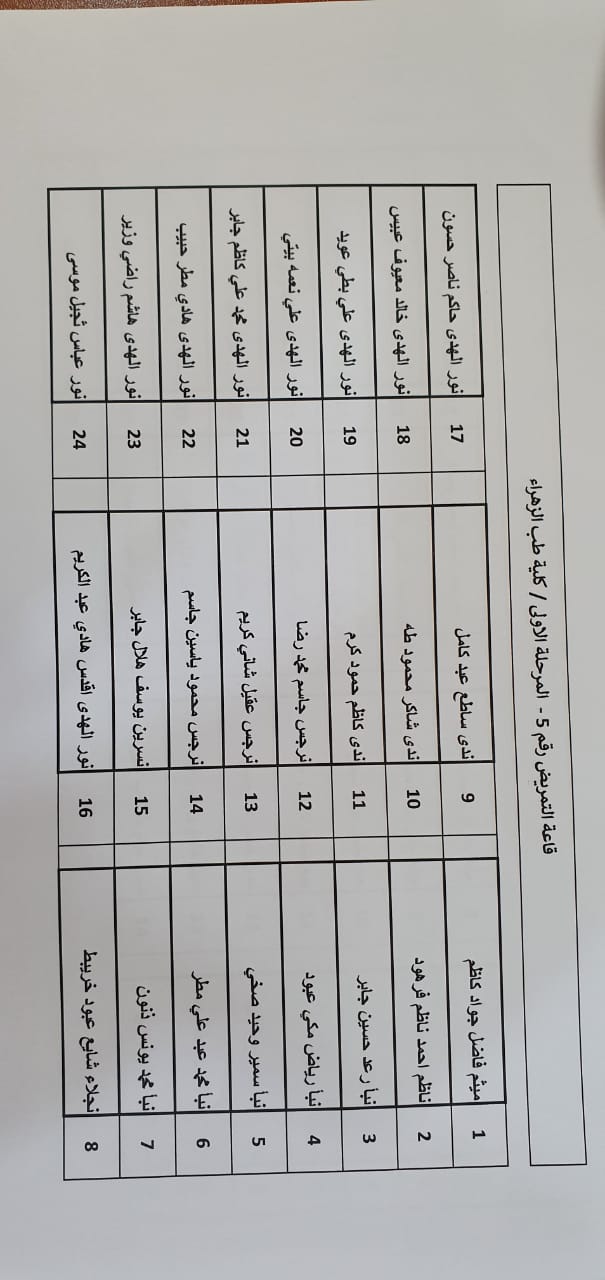 قاعة التمريض رقم 5 - المرحلة الاولى / كلية طب الزهراء
1 ميثم فاضل جواد كاظم 9 ندى ساطع عبد كامل 17 نور الهدى حاكم ناصر حسون
2 ناظم احمد ناظم فرهود 10 ندى شاكر محمود طه 18 نور الهدى خالد معيوف عبيس
3 نبأ رعد حسين جابر 11 ندى كاظم حمود كرم 19 نور الهدى علي بطي عويد
4 نبأ رياض مكي عبود 12 نرجس جاسم محمد رضا 20 نور الهدى علي نعمه بيتي
5 نبأ سمير وحيد صخي 13 نرجس عقيل شاتي كريم 21 نور الهدى محمد علي كاظم جابر
6 نبأ محمد عبد علي مطر 14 نرجس محمود ياسين جاسم 22 نور الهدى هادي مطر حبيب
7 نبأ محمد يونس ذنون 15 نسرين يوسف هلال جابر 23 نور الهدى هاشم راضي وزير
8 نجلاء شايع عبود خريبط 16 نور الهدى اقدس هادي عبد الكريم 24 نور عباس ثجيل موسى